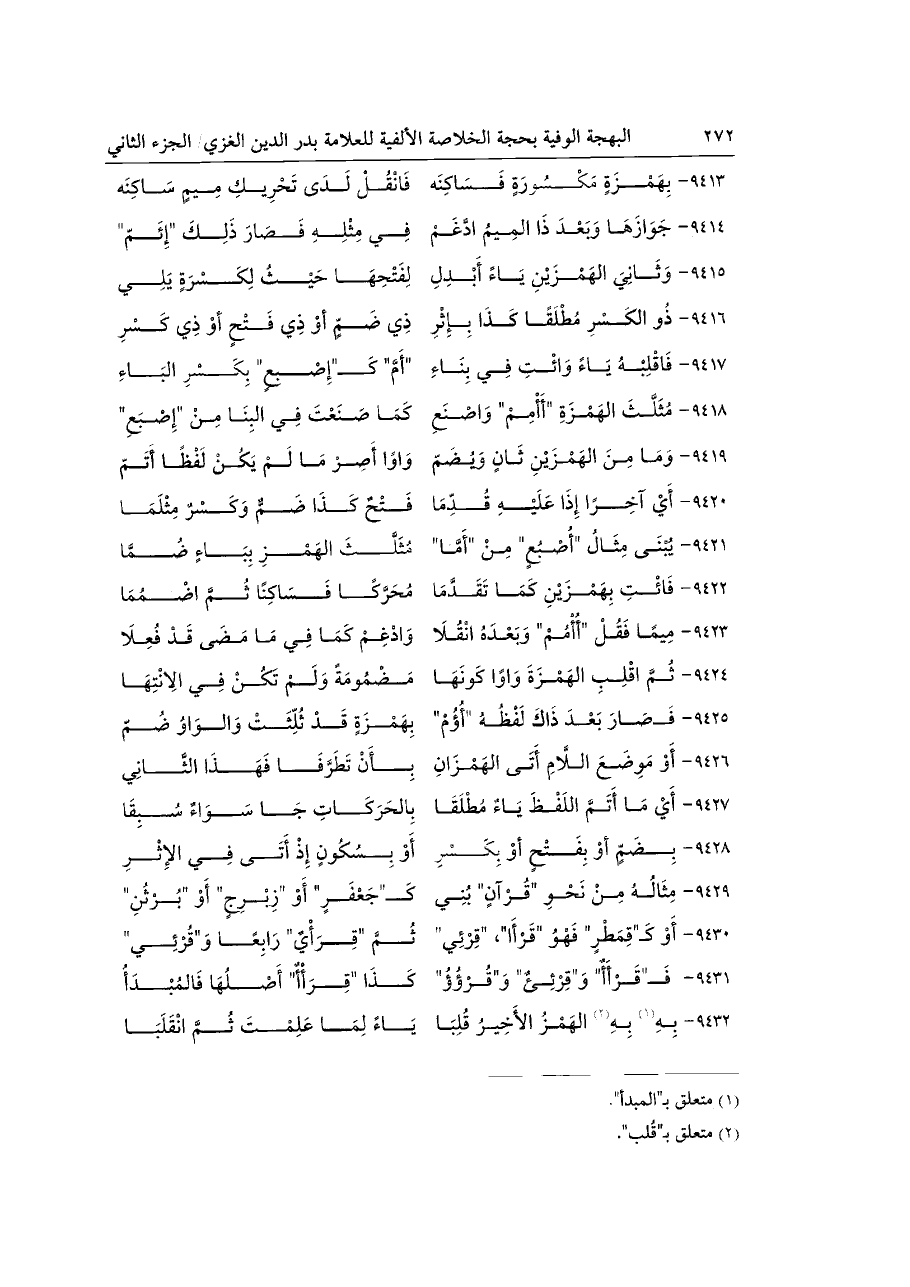 ٢٧٢ البهجة الوفية بحجة الخلاصة الألفية للعلامة بدر الدين الغزي/ الجزء الثاني
٩٤١٣- بِهَمْزَةٍ مَكْسُورَةٍ فَسَاكِنَه فَانْقُلْ لَدَى تَحْرِيكِ مِيمٍ سَاكِنَه
٩٤١٤- جَوَازَهَا وَبَعْدَ ذَا المِيمُ ادَّغَمْ فِي مِثْلِهِ فَصَارَ ذَلِكَ "إِئَمّ"
٩٤١٥- وَثَانِيَ الهَمْزَيْنِ يَاءً أَبْدِلِ لِفَتْحِهَا حَيْثُ لِكَسْرَةٍ يَلِي
٩٤١٦- ذُو الكَسْرِ مُطْلَقًا كَذَا بِإِثْرِ ذِي ضَمٍّ أوْ ذِي فَتْحٍ أوْ ذِي كَسْرِ
٩٤١٧- فَاقْلِبْهُ يَاءً وَائْتِ فِي بِنَاءِ "أَمَّ" كَـ"إِصْبِعٍ" بِكَسْرِ البَاءِ
٩٤١٨- مُثَلَّثَ الهَمْزَةِ "أَأْمِمْ" وَاصْنَعِ كَمَا صَنَعْتَ فِي البِنَا مِنْ "إِصْبَعِ"
٩٤١٩- وَمَا مِنَ الهَمْزَيْنِ ثَانٍ وَيُضَمّ وَاوًا أَصِرْ مَا لَمْ يَكُنْ لَفْظًا أَتَمّ
٩٤٢٠- أَيْ آخِرًا إِذَا عَلَيْهِ قُدِّمَا فَتْحٌ كَذَا ضَمٌّ وَكَسْرٌ مِثْلَمَا
٩٤٢١- يُبْنَى مِثَالُ "أُصْبُعٍ" مِنْ "أَمَّا" مُثَلَّثَ الهَمْزِ بِبَاءٍ ضُمَّا
٩٤٢٢- فَائْتِ بِهَمْزَيْنِ كَمَا تَقَدَّمَا مُحَرَّكًا فَسَاكِنًا ثُمَّ اضْمُمَا
٩٤٢٣- مِيمًا فَقُلْ "أُأْمُمْ" وَبَعْدَهُ انْقُلَا وَادْغِمْ كَمَا فِي مَا مَضَى قَدْ فُعِلَا
٩٤٢٤- ثُمَّ اقْلِبِ الهَمْزَةَ وَاوًا كَونَهَا مَضْمُومَةً وَلَمْ تَكُنْ فِي الِانْتِهَا
٩٤٢٥- فَصَارَ بَعْدَ ذَاكَ لَفْظُهُ "أَوُمّ" بِهَمْزَةٍ قَدْ ثُلِّثَتْ وَالوَاوُ ضُمّ
٩٤٢٦- أَوْ مَوضَعَ اللَّامِ أَتَى الهَمْزَانِ بِأَنْ تَطَرَّفَا فَهَذَا الثَّانِي
٩٤٢٧- أَيْ مَا أَتَمَّ اللَفْظَ يَاءً مُطْلَقَا بِالحَرَكَاتِ جَا سَوَاءً سُبِقَا
٩٤٢٨- بِضَمٍّ أوْ بِفَتْحٍ أوْ بِكَسْرِ أَوْ بِسُكُونٍ إِذْ أَتَى فِي الإِثْرِ
٩٤٢٩- مِثَالُهُ مِنْ نَحْوِ "قُرْآنٍ" بُنِي كَـ"جَعْفَرٍ" أَوْ "زِبْرِجٍ" أَوْ "بُرْثُنِ"
٩٤٣٠- أَوْ كَـ"قِمَطْرٍ" فَهْوَ "قَرْأَا"، "قِرْئِي" ثُمَّ "قِرَأْيٌ" رَابِعًا وَ"قُرْئِي"
٩٤٣١- فَـ"قَرْأَأٌ" وَ"قِرْئِئٌ" وَ"قُرْؤُؤُ" كَذَا "قِرَأْأٌ" أَصْلُهَا فَالمُبْدَأُ
٩٤٣٢- بِهِ(١) بِهِ(٢) الهَمْزُ الأَخِيرُ قُلِبَا يَاءً لِمَا عَلِمْتَ ثُمَّ انْقَلَبَا
(١) متعلق بـ"المبدأ".
(٢) متعلق بـ"قُلب".